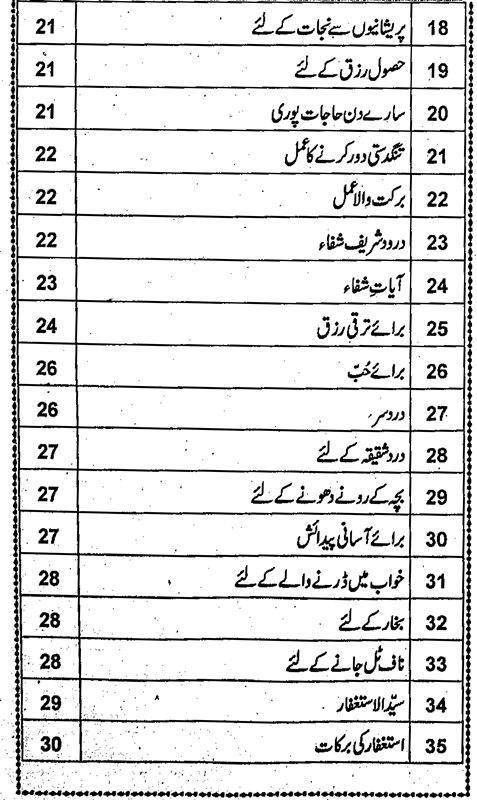 18 پریشانیوں سے نجات کے لئے 21
19 حصول رزق کے لئے 21
20 سارے دن حاجات پوری 21
21 تنگدستی دور کرنے کا عمل 22
22 برکت والا عمل 22
23 درود شریف شفاء 22
24 آیاتِ شفاء 23
25 برائے ترقی رزق 24
26 برائے حُبّ 26
27 درد سر 26
28 درد شقیقہ کے لئے 27
29 بچہ کے رونے دھونے کے لئے 27
30 برائے آسانی پیدائش 27
31 خواب میں ڈرنے والے کے لئے 28
32 بخار کے لئے 28
33 ناف ٹل جانے کے لئے 28
34 سیّد الاستغفار 29
35 استغفار کی برکات 30